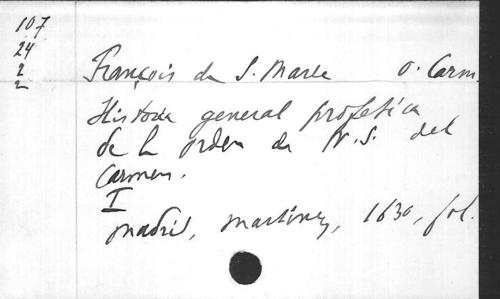 107
24
2
2
François de S. Marie O. Carm.
Historia general profetica
de la orden de N. S. del
Carmen.
I
Madrid, Martinez, 1630, fol.